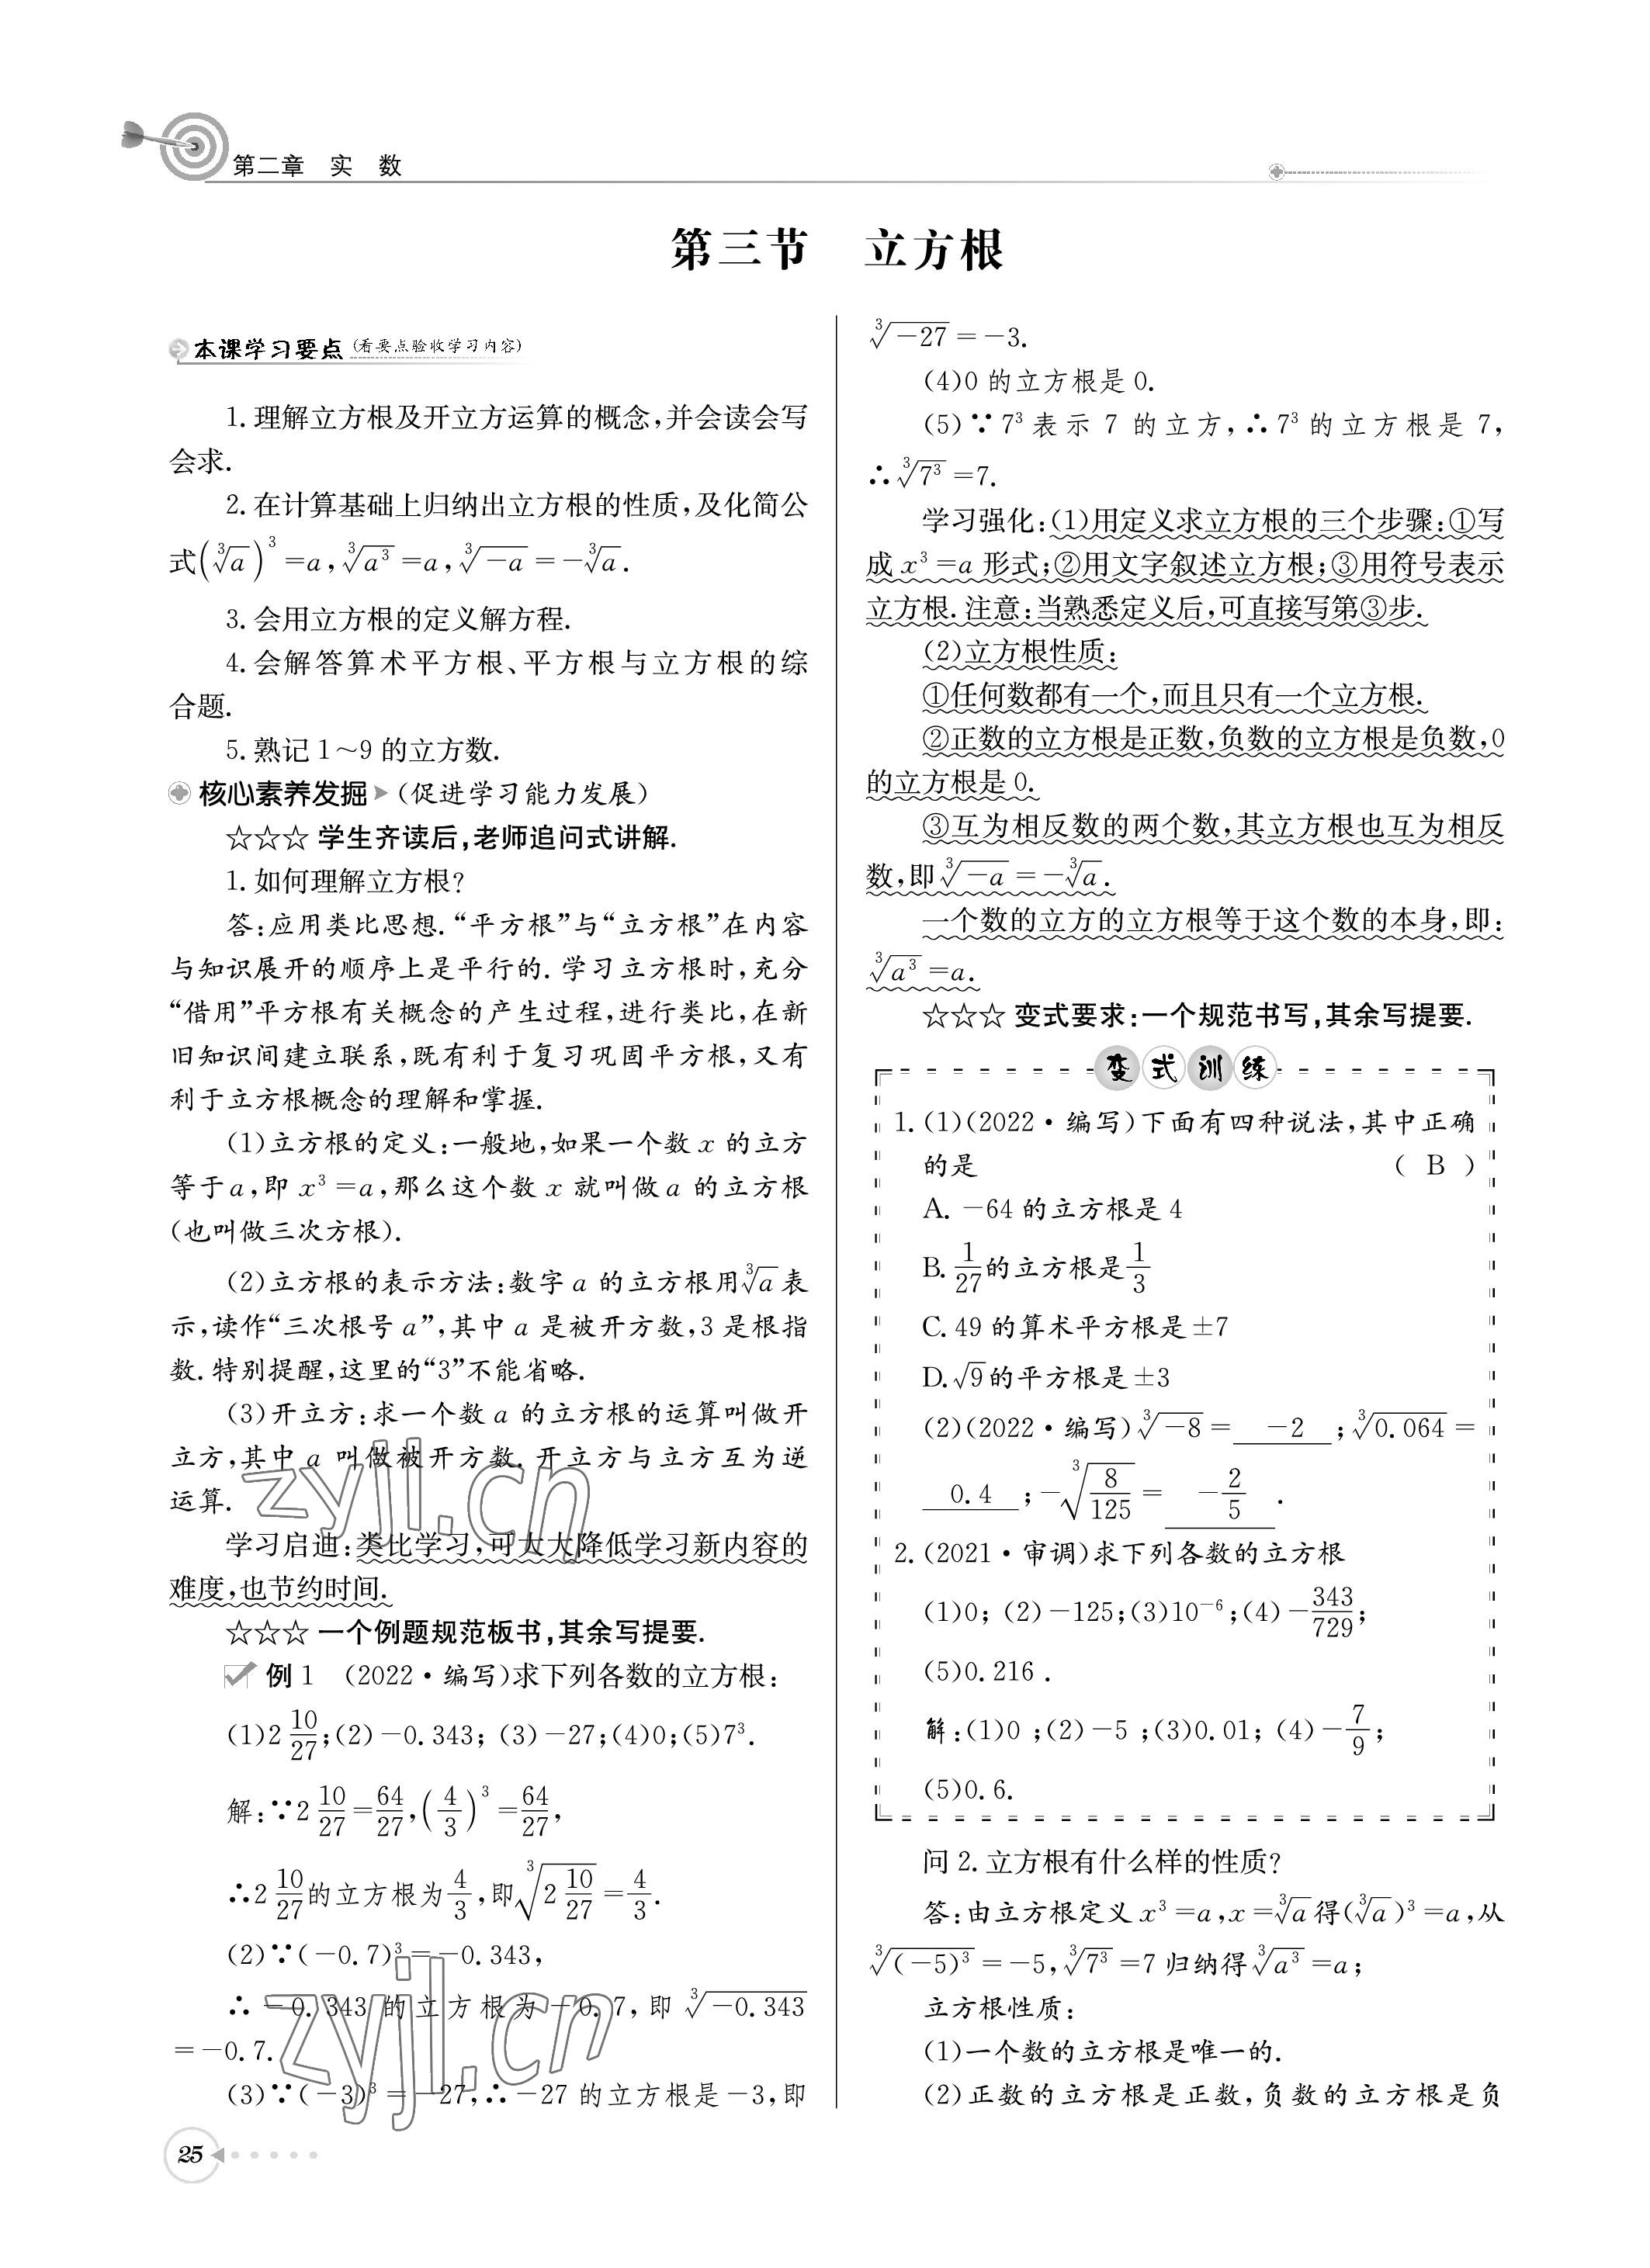 第二章 实 数
第三节 立方根
本课学习要点(看要点验收学习内容)
1.理解立方根及开立方运算的概念,并会读会写
会求.
2.在计算基础上归纳出立方根的性质,及化简公
式(∛a)³=a,∛a³=a,∛-a=-∛a.
3.会用立方根的定义解方程.
4.会解答算术平方根、平方根与立方根的综
合题.
5.熟记1~9的立方数.
核心素养发掘 (促进学习能力发展)
☆☆☆ 学生齐读后,老师追问式讲解.
1.如何理解立方根?
答:应用类比思想.“平方根”与“立方根”在内容
与知识展开的顺序上是平行的.学习立方根时,充分
“借用”平方根有关概念的产生过程,进行类比,在新
旧知识间建立联系,既有利于复习巩固平方根,又有
利于立方根概念的理解和掌握.
(1)立方根的定义:一般地,如果一个数x的立方
等于a,即x³=a,那么这个数x就叫做a的立方根
(也叫做三次方根).
(2)立方根的表示方法:数字a的立方根用∛a表
示,读作“三次根号a”,其中a是被开方数,3是根指
数.特别提醒,这里的“3”不能省略.
(3)开立方:求一个数a的立方根的运算叫做开
立方,其中a叫做被开方数.开立方与立方互为逆
运算.
学习启迪:类比学习,可大大降低学习新内容的
难度,也节约时间.
☆☆☆ 一个例题规范板书,其余写提要.
例1 (2022·编写)求下列各数的立方根:
(1)2 10/27;(2)-0.343;(3)-27;(4)0;(5)7³.
解:∵2 10/27=64/27,(4/3)³=64/27,
∴2 10/27的立方根为4/3,即∛(2 10/27)=4/3.
(2)∵(-0.7)³=-0.343,
∴-0.343的立方根为-0.7,即∛-0.343
=-0.7.
(3)∵(-3)³=-27,∴-27的立方根是-3,即
∛-27=-3.
(4)0的立方根是0.
(5)∵7³表示7的立方,∴7³的立方根是7,
∴∛7³=7.
学习强化:(1)用定义求立方根的三个步骤:①写
成x³=a形式;②用文字叙述立方根;③用符号表示
立方根.注意:当熟悉定义后,可直接写第③步.
(2)立方根性质:
①任何数都有一个,而且只有一个立方根.
②正数的立方根是正数,负数的立方根是负数,0
的立方根是0.
③互为相反数的两个数,其立方根也互为相反
数,即∛-a=-∛a.
一个数的立方的立方根等于这个数的本身,即:
∛a³=a.
☆☆☆ 变式要求:一个规范书写,其余写提要.
变式训练
1.(1)(2022·编写)下面有四种说法,其中正确
的是 ( B )
A.-64的立方根是4
B.1/27的立方根是1/3
C.49的算术平方根是±7
D.√9的平方根是±3
(2)(2022·编写)∛-8= -2 ;∛0.064=
0.4 ;-∛(8/125)= -2/5 .
2.(2021·审调)求下列各数的立方根
(1)0;(2)-125;(3)10⁻⁶;(4)-343/729;
(5)0.216.
解:(1)0;(2)-5;(3)0.01;(4)-7/9;
(5)0.6.
问2.立方根有什么样的性质?
答:由立方根定义x³=a,x=∛a得(∛a)³=a,从
∛(-5)³=-5,∛7³=7归纳得∛a³=a;
立方根性质:
(1)一个数的立方根是唯一的.
(2)正数的立方根是正数,负数的立方根是负
25
zyjl.cn
zyjl.cn